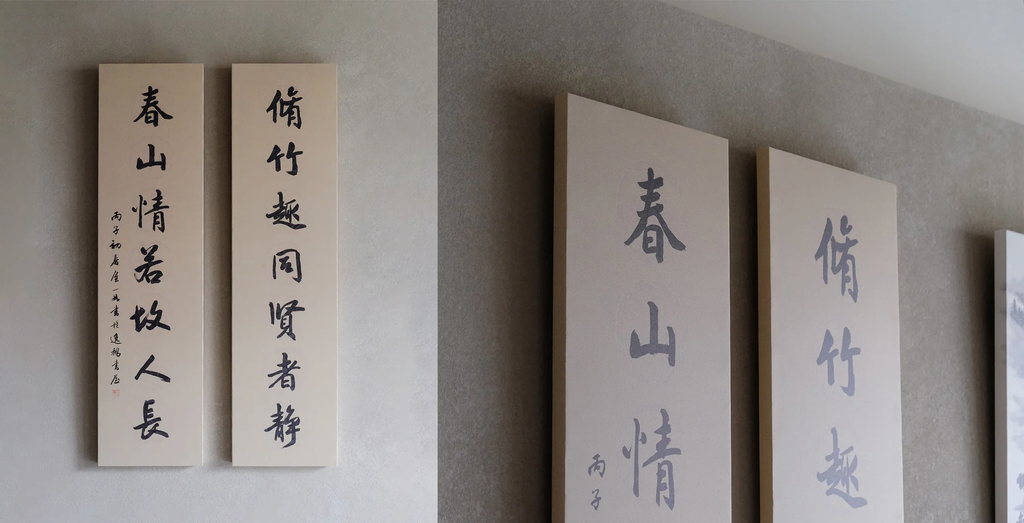 脩竹趣同賢者静
春山情若故人長
丙子初春金一鸥書於逸鸥書屋
春山情
丙子
脩竹趣